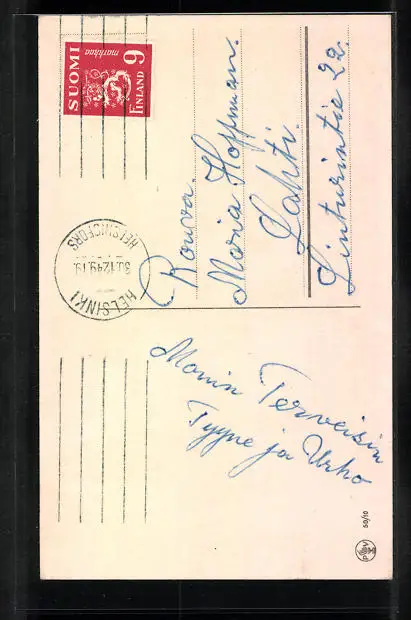 SUOMI
markkaa
9
FINLAND
HELSINKI
30.12.49.19.
HELSINGFORS
Rouva.
Maria Hoffman.
Lahti.
Linturintie 22.
Monin Terveisin
Tyyne ja Urho
50/10